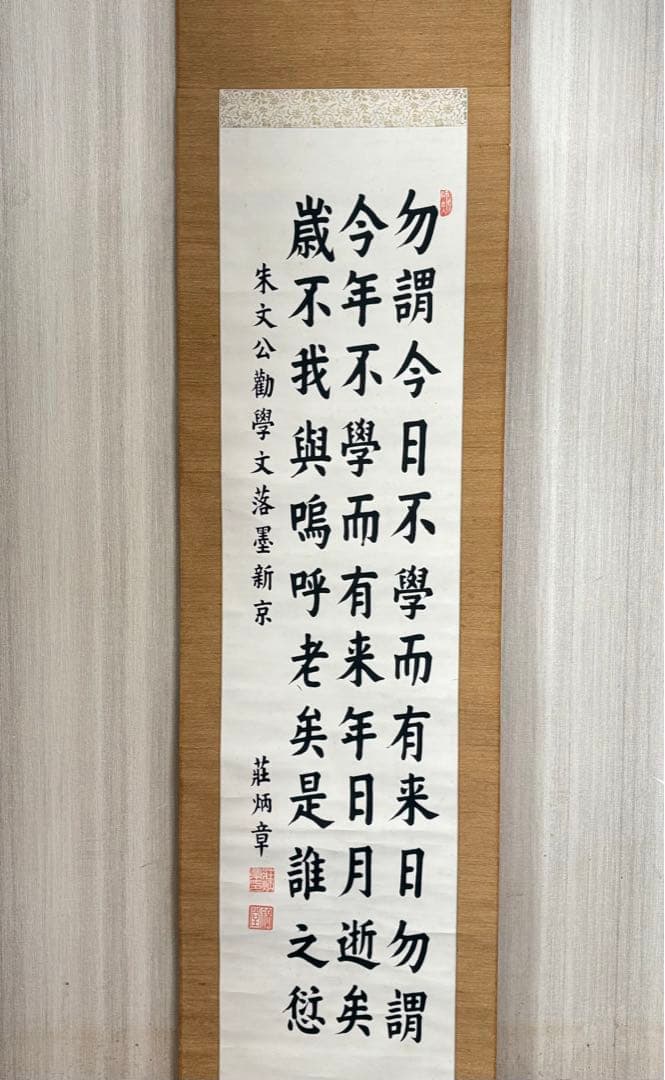 勿謂今日不學而有来日勿謂
今年不學而有来年日月逝矣
歳不我與嗚呼老矣是誰之愆
朱文公勸學文落墨新京
莊炳章